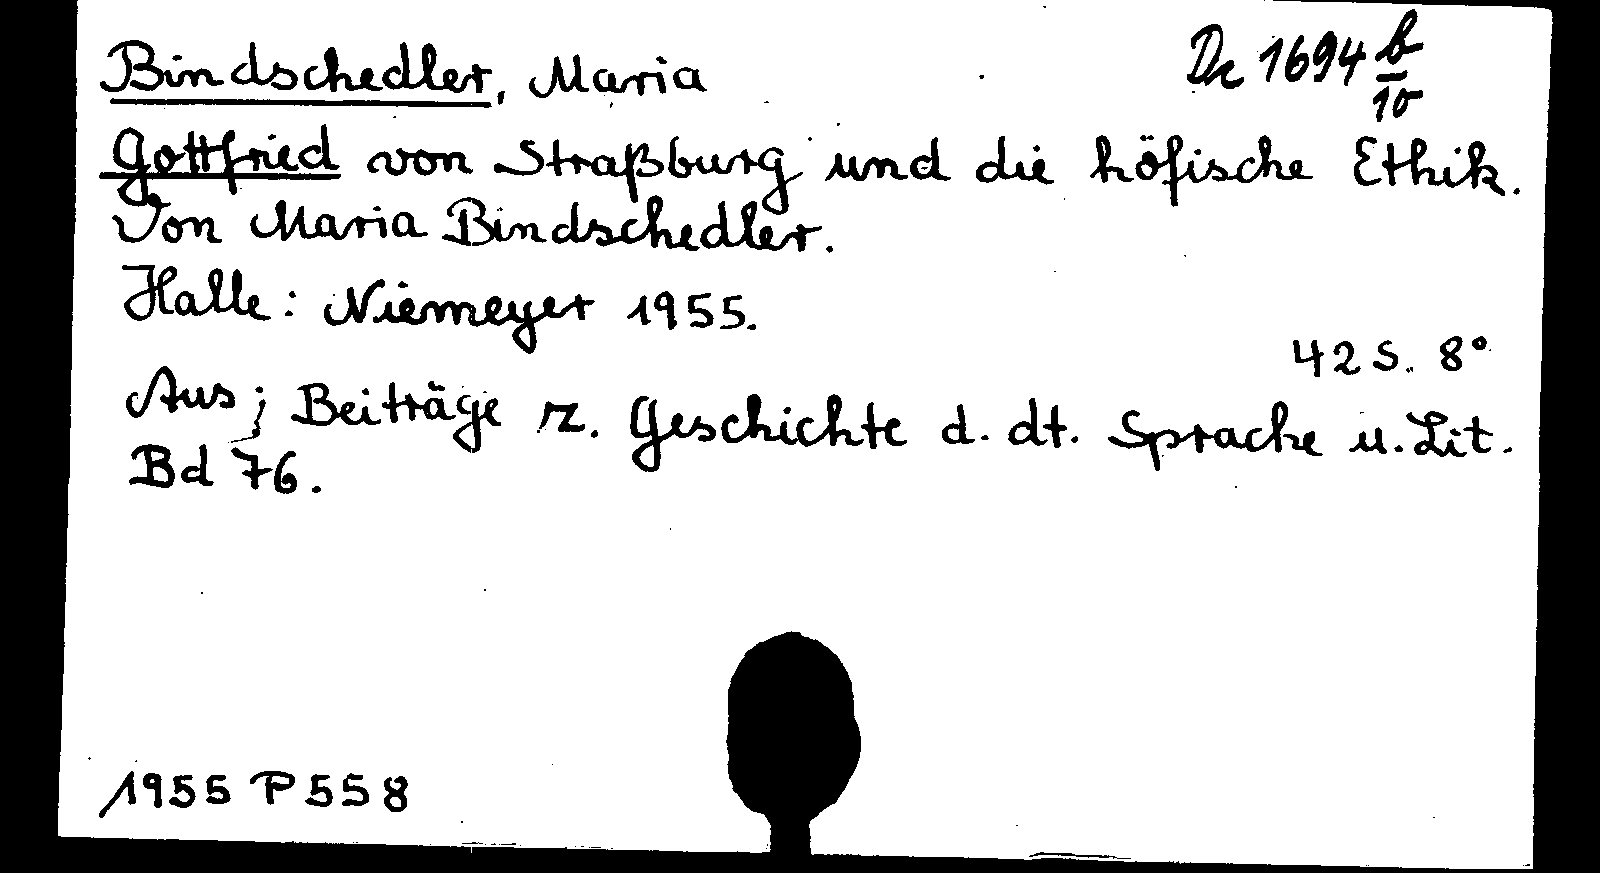 Bindschedler, Maria
De 1694 b/10
Gottfried von Straßburg und die höfische Ethik.
Von Maria Bindschedler.
Halle: Niemeyer 1955.
42 S. 8°
Aus; Beiträge z. Geschichte d. dt. Sprache u. Lit.
Bd 76.
1955 P 558